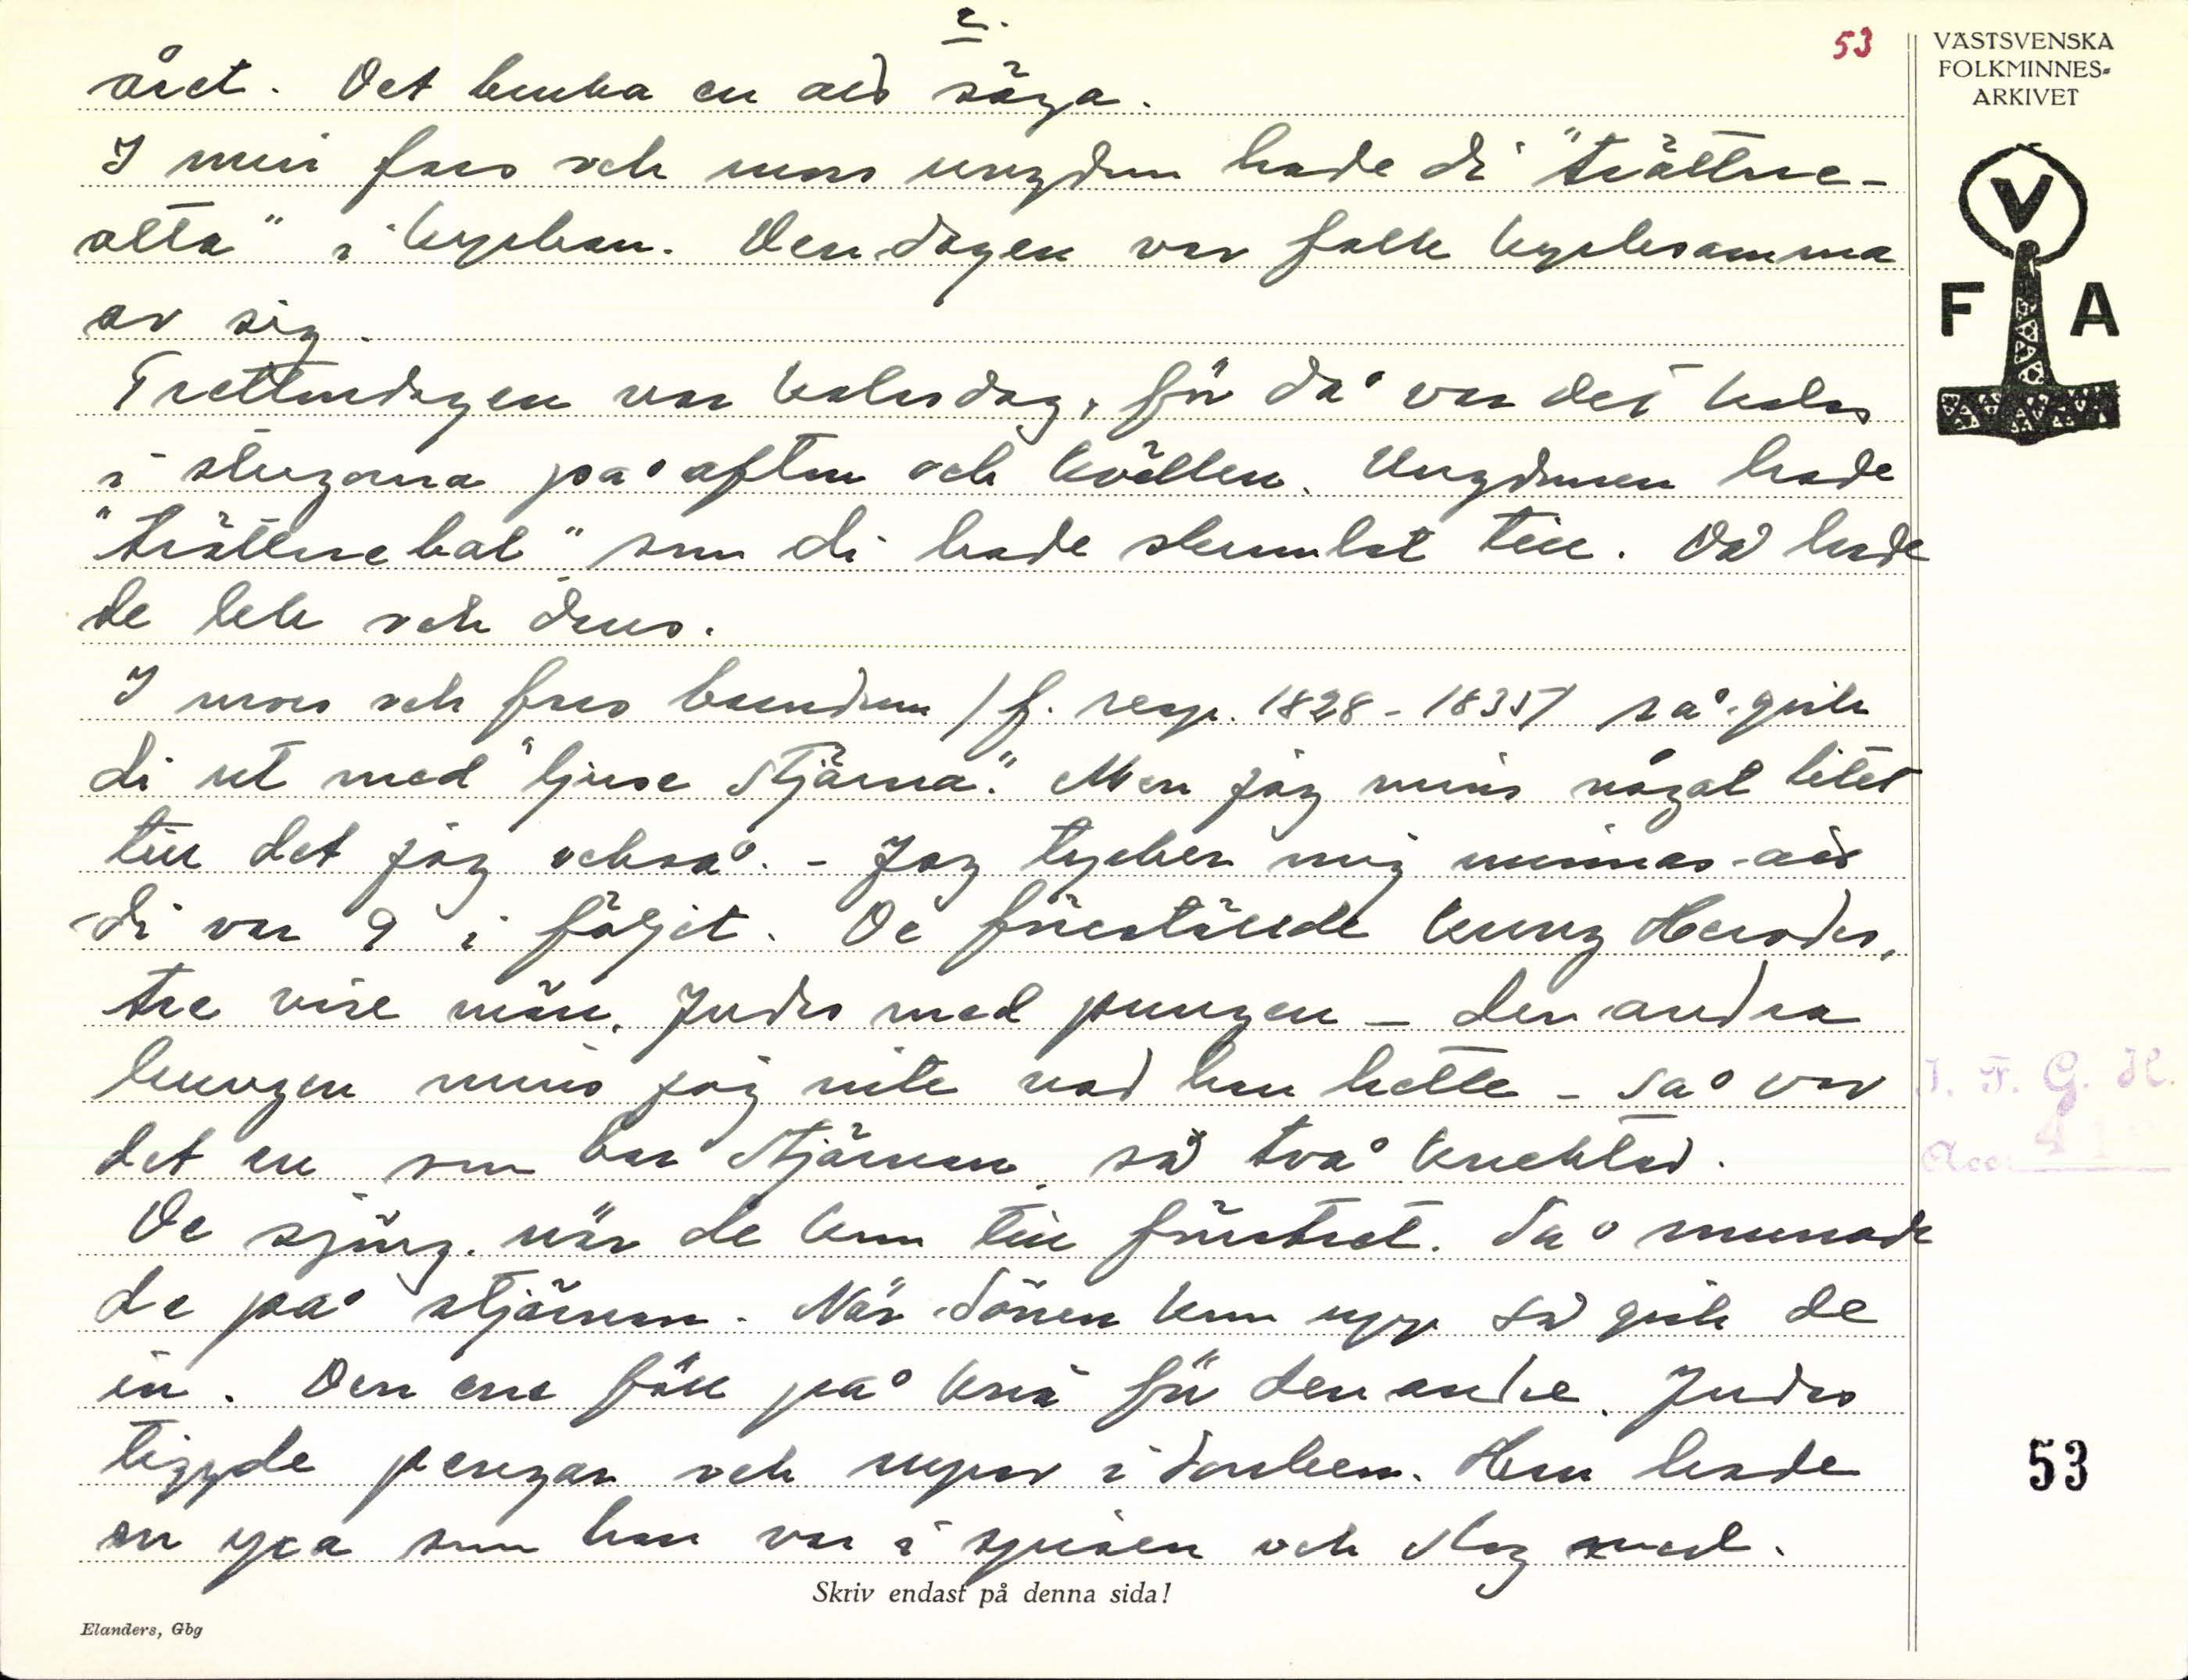 2.
53
året. Det bruka en alltid säga.
I min fars och mors ungdom hade di "trättne-
otta" i kyrkan. Den dagen var folk kyrksamma
av sig.
Trettondagen var kalasdag, för då var det kalas
i stugorna på afton och kvällen. Ungdomen hade
"trättnebal" som di hade skramlat till. Då hade
de lek och dans.
I mors och fars barndom /f. resp. 1828-1835/ så gick
di ut med "ljuse stjärna". Men jag minns något litet
till det jag också. - Jag tycker mig minnas att
di var 9 i följet. De föreställde kung Herodes,
tre vise män, Judas med pungen - den andra
kungen minns jag inte vad han hette - så var
det en som bar stjärnan, så två knektar.
De sjöng när de kom till fönstret. Så snurrade
de på stjärnan. När dörren kom upp så gick de
in. Den ene föll på knä för den andre. Judas
tiggde pengar och supar i banken. Han hade
en yxa som han var i spisen och slog med.
Skriv endast på denna sida!
Elanders, Gbg
VÄSTSVENSKA
FOLKMINNES-
ARKIVET
V
F A
I. F. G. H.
Acc.
53